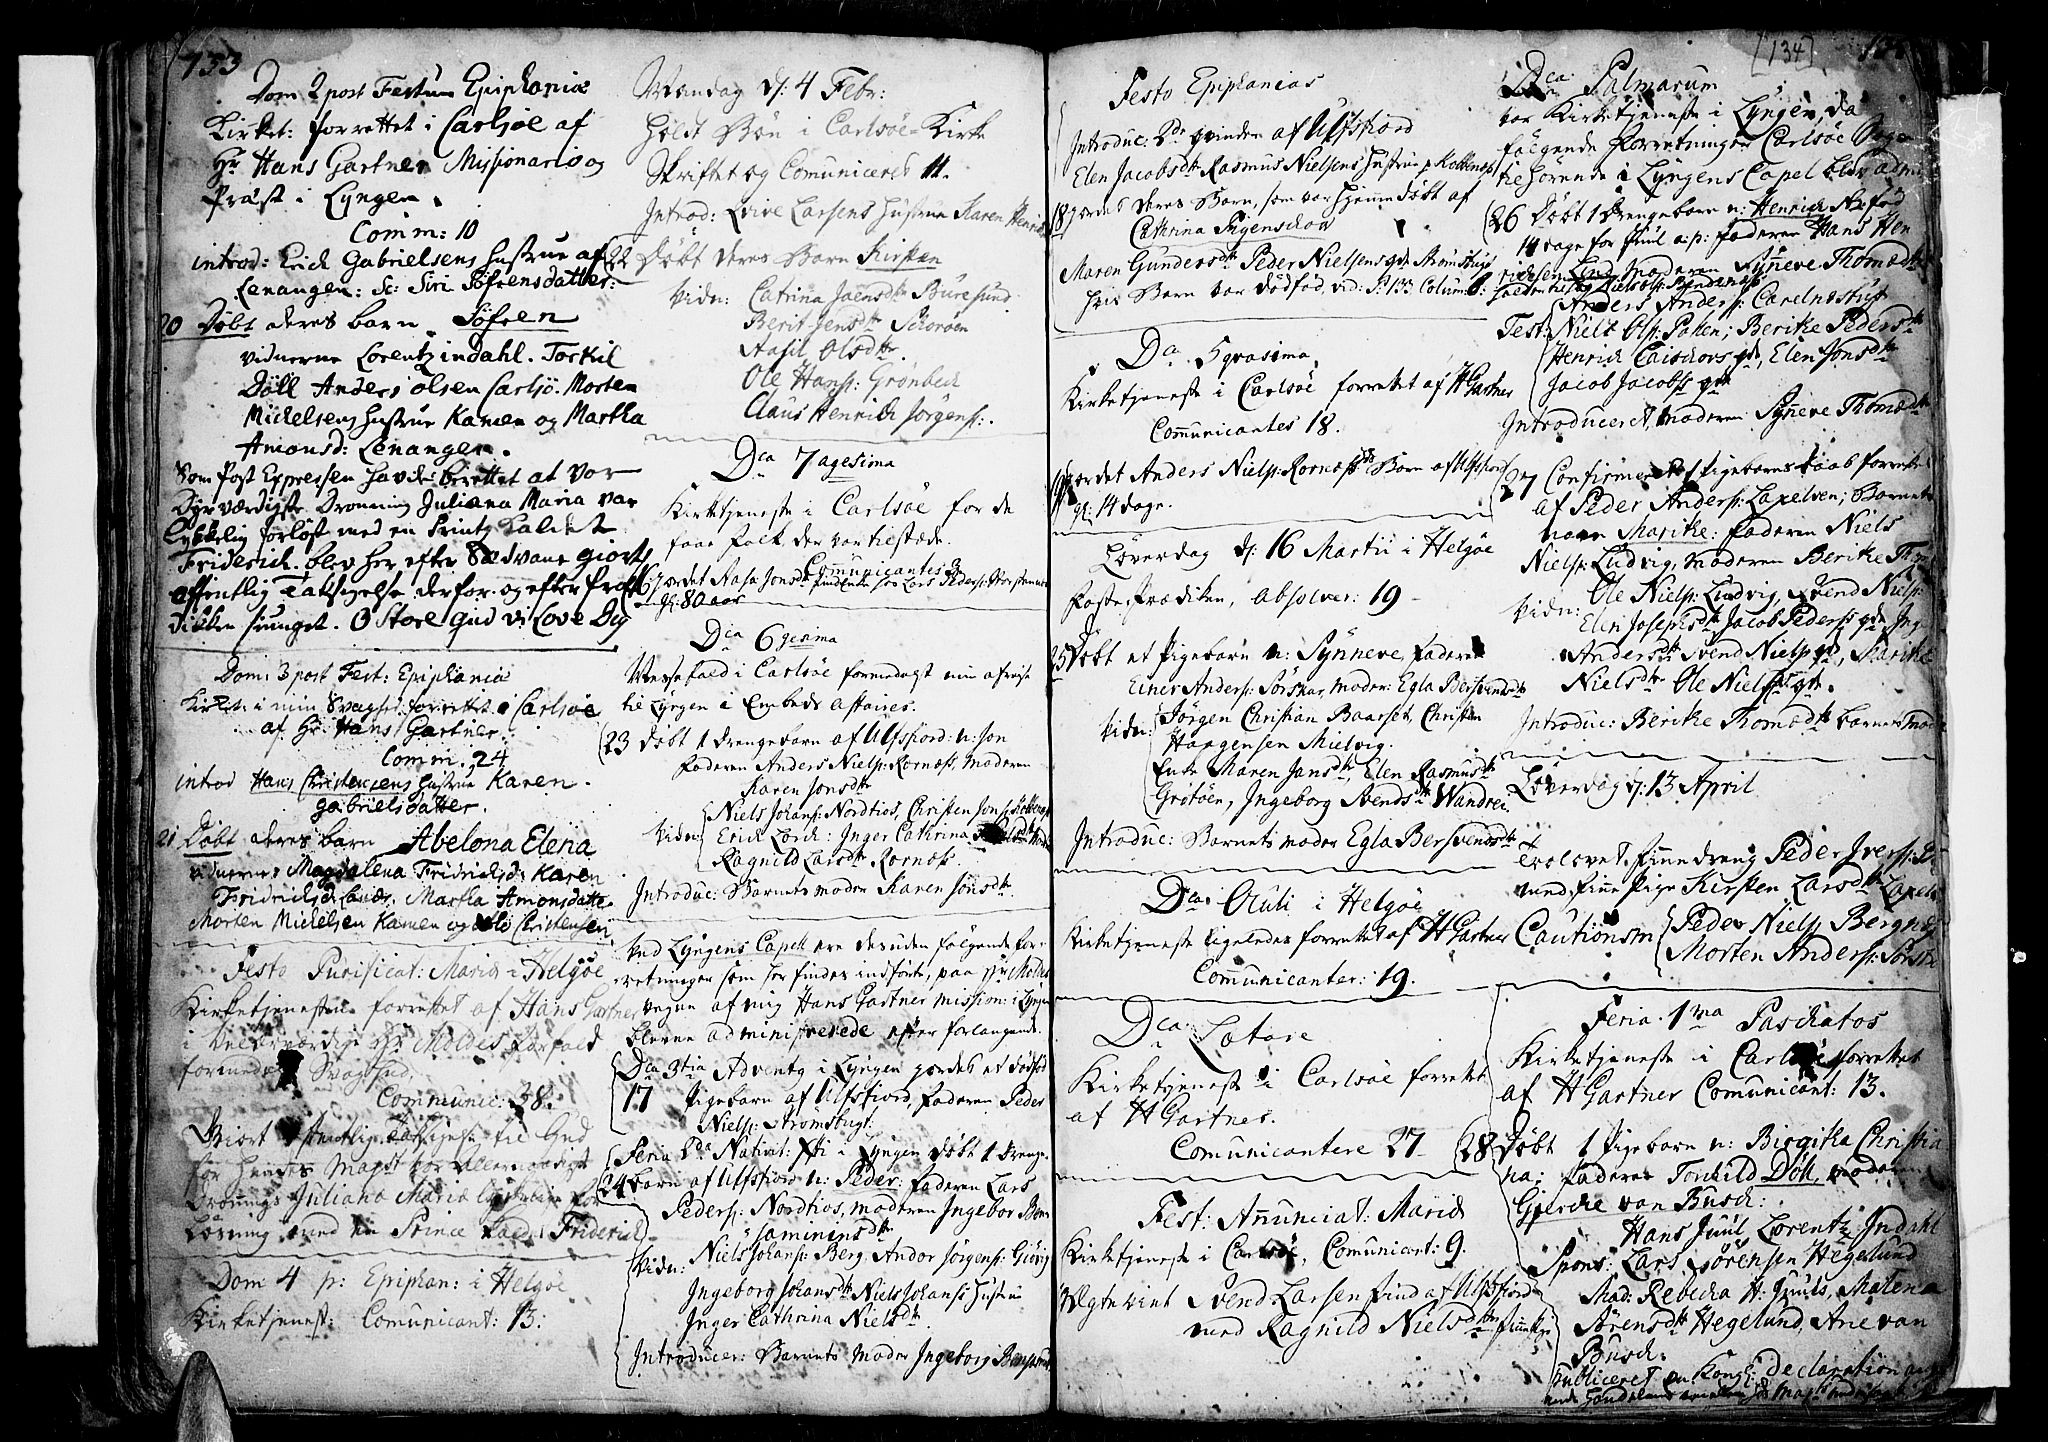 133
Dom 2 post Festum Epiphaniæ
Kirket: forrettet i Carlsøe af
Hr Hans Gartner Missionario og
Præst i Lyngen.
Comm: 10
introd: Erich Gabrielsens Hustrue af
Lenangen: Sc: Siri Søfrensdatter:
20 Døbt deres barn Søfren
vidnerne Lorentz indahl. Torkil
Döll Anders olsen Carlsö. Morten
Mickelsens Hustrue Kamen og Martha
Amonsd: Lenangen.
Som Post Expressen havde berettet at vor
Dyrværdigste Dronning Juliana Maria var
lykkelig forløst med en Printz kaldet
Friderich. blev her efter Sædvane giort
offentlig Taksigelse derfor. og efter Præ
diken siunget. O Store Gud vi Love Dig
Dom: 3 post Fest: Epiphaniæ
Kirket: i min Svaghed forrettet i Carlsøe
af Hr: Hans Gartner.
Comm. 24
introd Hans Christensens Hustrue Karen
gabrielsdatter.
21 Døbt deres barn Abelona Elena
vidnerne Magdalena Fridrichsd: Karen
Fridrichsd: Martha Amonsdatter
Morten Mickelsen Kamen og Christensen
Festo Purificat: Mariæ i Helgøe
Kirketjenesten forrettet af Hans Gartner
i Velærværdige Hr Moldes forfald
formedelst Svaghed.
Communic: 38.
Giort offentlig Taksigelse til Gud
for Hendes Mayst vor Allernaadigste
Dronnings Juliana Maria lykkelige for
løsning med en Prince kaldet Friderich
Dom 4 p: Epiphan: i Helgøe
Kirketjenest: Comunicant: 13.
Mandag d: 4 Febr:
holdt Bøn i Carlsöe Kirke
Skriftet og Comuniceret 11.
Introd: Ive Larsens Hustrue Karen Henrichs
22 Døbt deres Barn Kirsten
Vidn: Catrina Jaensdtr Buresund
Berit Jensdtr Schorøen
Aasil Olsdtr
Ole Hans: Grønbech
Claus Henrich Jörgens:.
Dca 7 agesima
Kirketjeneste i Carlsöe for de
faae folk der var tilstæde.
Comunicantes 3
16 jordet Aasa Jonsdtr Lars Peders:
gl: 80 aar
Dca 6 gesima
Messefald i Carlsöe formedelst min afreise
til Lyngen i Embeds affaires.
23 Döbt 1 drengebarn af Ulfsfiord: n: Jon
Faderen Anders Niels: Kornæs, Moderen
Karen Jonsdtr
Vidn: Niels Johans: Nordtios, Christen Jons:
Erich Lorch: Inger Cathrina
Ragnild Larsdtr Kornæs.
Introduc: Barnets moder Karen Jonsdtr.
Ved Lyngens Capell ere desuden følgende for-
retninger som her findes indførte, paa Hr Moldes
vegne af mig Hans Gartner mission: i Lyngen
blevne administrerede efter forlangende.
Dca 3tia Adventq i Lyngen jordet et dødfød
17 Pigebarn af Ulfsfiord, faderen Peder
Niels: Strömsbugt.
Feria 2da Nativit: Xti i Lyngen Döbt 1 drenge
24 barn af Ulfsfiord n: Peder: Faderen Lars
Peders: Nordtios, moderen Ingebor Ben
jaminsdtr
Vidn: Niels Johans: Berg, Andor Jörgens:
Ingeborg Johansdtr Niels Johans: Hustrue
Inger Cathrina Nielsdtr.
Introducer: Barnets Moder Ingeborg Benjamins
[134]
Festo Epiphanias
Introduc: 2de qvinder af Ulfsfiord
Elen Jacobsdtr Rasmus Nielsens Hustrue
18 jordet deres Barn, som var hjemmedöbt af
Cathrina
Maren Gundersdtr Peder Nielsens qde Strömsbugt
hvis Barn var dödfød, vid: P: 133 Colum:
Dca 5 qvasima
Kirketjeneste i Carlsöe forrettet af HGartner
Communicantes 18.
19 jordet Anders Niels: Kornæs Barn af Ulfsfiord
gl: 14 dage.
Löverdag d: 16 Martii i Helgöe
Faste Prædiken, absolver: 19
25 Döbt et Pigebarn n: Synneve, Faderen
Einer Anders: Sörskar, Moder: Egla Bersvendsdtr
Vidn: Jörgen Christian Baarset, Christen
Haagensen Mielvig.
Enke Maren Jansdtr, Elen Rasmusdtr
Grötöen, Ingeborg Svendsdtr Wandrei
Introduc: Barnets moder Egla Bersvendsdtr
Dca Oculi i Helgöe
Kirketjeneste ligeledes forrettet af HGartner
Comunicanter: 19.
Dca Lætare
Kirketjeneste i Carlsöe forrettet
af HGartner.
Comunicantere 27
Fest: Anunciat: Mariæ
Kirketjeneste i Carlsöe, Comunicant: 9.
Ægteviet Svend Larsen find af Ulfsfiord
med Ragnild Nielsdtr
Dca Palmarum
var Kirketjeneste i Lyngen, da
fölgende Forretninger Carlsöe
tilhörende i Lyngens Capel blev admi
26 Döbt 1 drengebarn n: Henrich fød
14 dage for Juul a:p: faderen Hans Hen
richsen Lind, Moderen Synneve Thomædtr
Anders Anders:
Test: Niels Ols: Poken; Berithe Pedersdtr
Henrich, Elen Jonsdtr
Jacob Jacobs: qde
Introduceret, moderen Synneve Thomædtr
27 Confirmeret Pigebarns daab forrettet
af Peder Anders: Lapelven; Barnets
navn Marithe: faderen Niels
Niels: Ludvig, moderen Berithe
Vidn: Ole Niels: Ludvig, Svend Niels:
Elen Josephsdtr Jacob Peders: qde Ing
Andersdtr Svend Niels: qde, Marithe
Nielsdtr Ole Niels: qde.
Introduc: Berithe Thomædtr barnets Moder
Löverdag d: 13 April
trolovet finnedreng Peder Ivers:
med finne Pige Kirsten Larsdtr
Cautionsm Peder Niels: Bergnes
Morten Anders:
Feria 1ma Paschatos
Kirketjeneste i Carlsöe forrettet
af HGartner Comunicant: 13.
28 Döbt 1 Pigebarn n: Birgitha Christia
na; faderen Torchild Döll, moderen
Gjerche van Busch:
Hans Juul, Lorentz Indahl
Spons: Lars Sörensen Hegelund
Mad: Rebecka H: Juuls, Malena
Sörensdtr Hegelund, Ane van
Busch:
Publiceret en Kongl: declaration